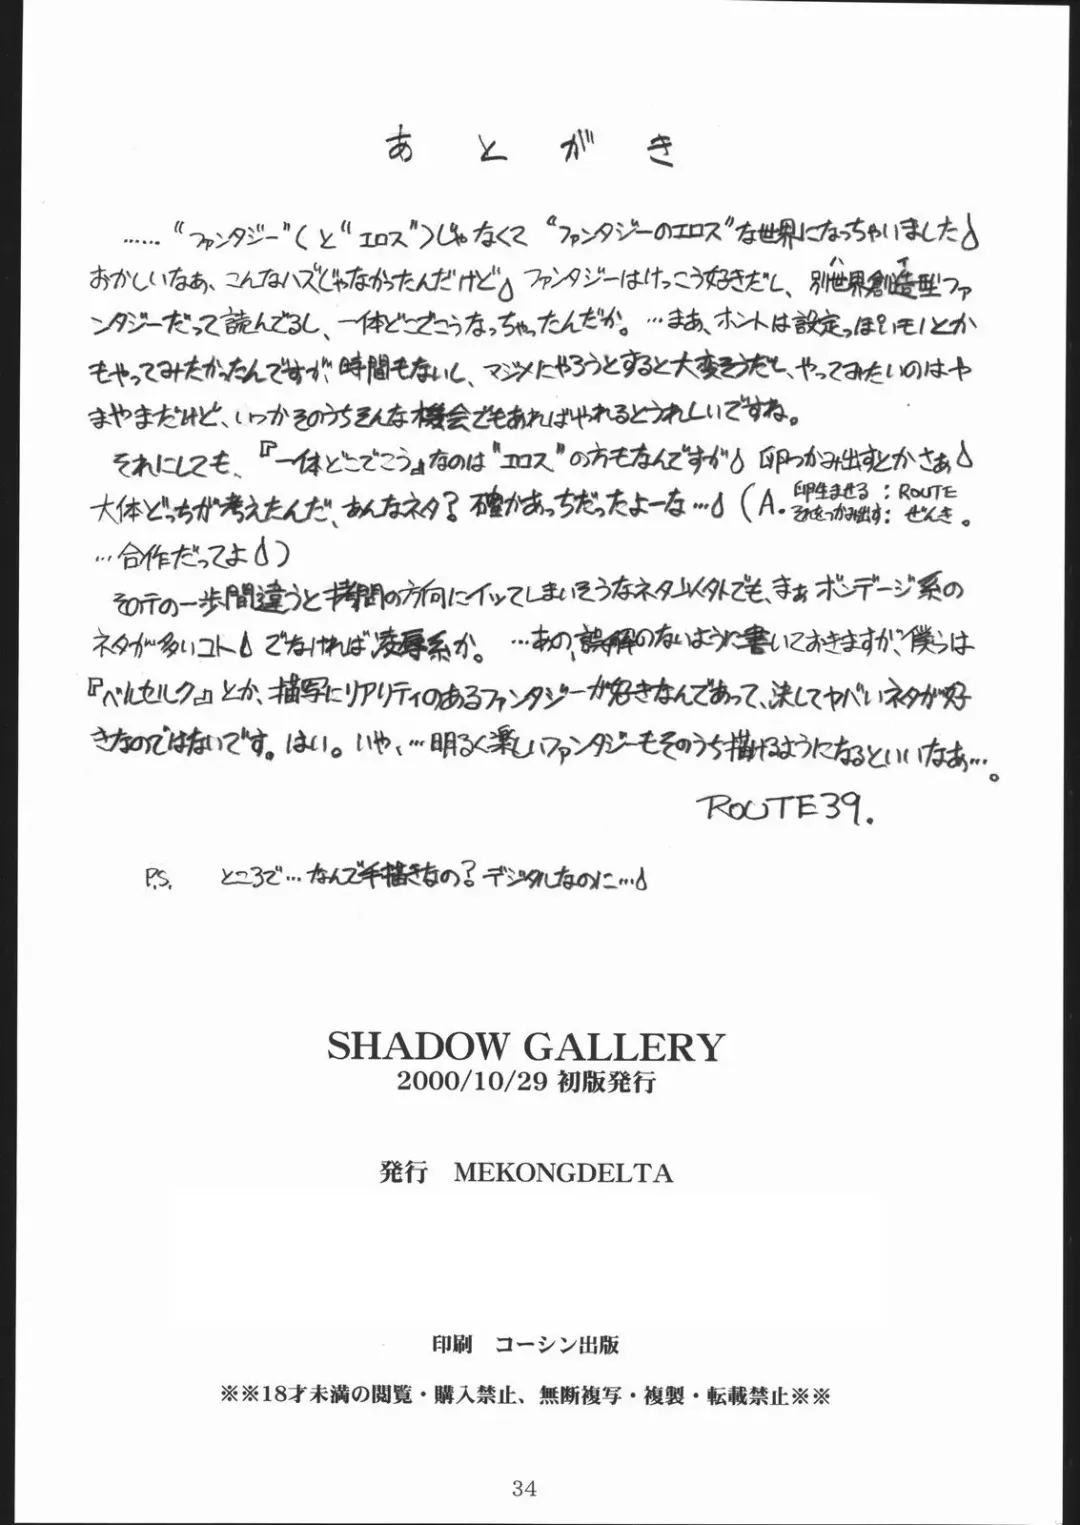 あとがき
……“ファンタジー”(と“エロス”)じゃなくて“ファンタジーのエロス”な世界になっちゃいました
おかしいなぁ、こんなハズじゃなかったんだけど ファンタジーはけっこう好きだし、別世界創造型ファ
ンタジーだって読んでるし、一体どこでこうなっちゃったんだか。…まあ、ホントは設定っぽいモノとか
もやってみたかったんですが、時間もないし、マジメにやろうとすると大変そうだし、やってみたいのはや
まやまだけど、いつかそのうちそんな機会でもあればやれるとうれしいですね。
それにしても、『一体どこでこう』なのは“エロス”の方もなんですが 卵つかみ出すとかさぁ
大体どっちが考えたんだ、あんなネタ？確かあっちだったよーな…(A. 卵生ませる：ROUTE
それをつかみ出す：ぜんき。
…合作だってよ)
その一歩間違うと拷問の方向にイッてしまいそうなネタ以外でも、まぁボンデージ系の
ネタが多いコト でなければ凌辱系か。…あの、誤解のないように書いておきますが、僕らは
『ベルセルク』とか、描写にリアリティのあるファンタジーが好きなんであって、決してヤバいネタが好
きなのではないです。はい。いや、…明るく楽しいファンタジーもそのうち描けるようになるといいなぁ…。
ROUTE39.
P.S. ところで…なんで手描きなの？デジタルなのに…
SHADOW GALLERY
2000/10/29 初版発行
発行 MEKONGDELTA
印刷 コーシン出版
※※18才未満の閲覧・購入禁止、無断複写・複製・転載禁止※※
34